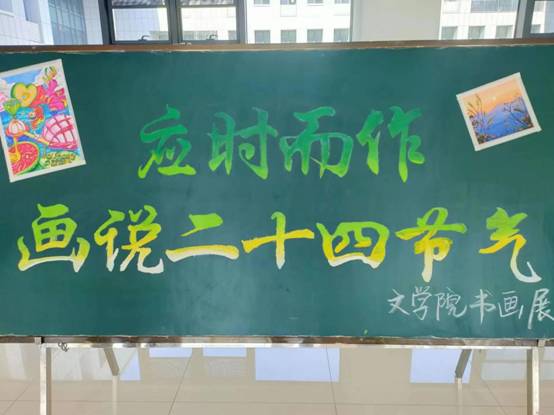 应时而作
画说二十四节气
文学院书画展